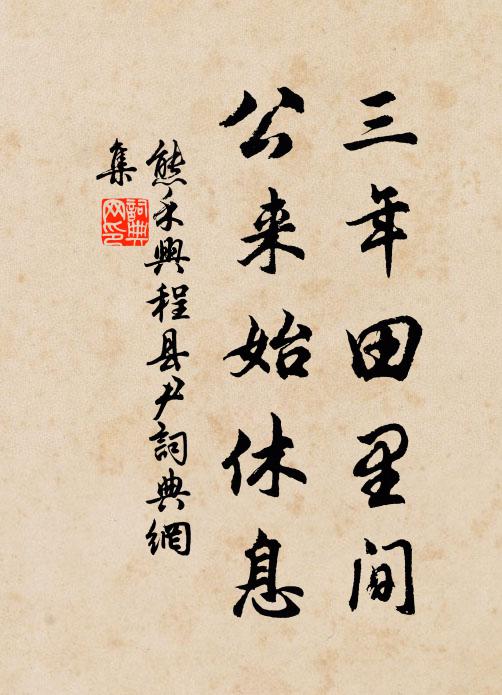 三年田里间
公来始休息
熊禾興程县尹詞典網
集
詞典网印